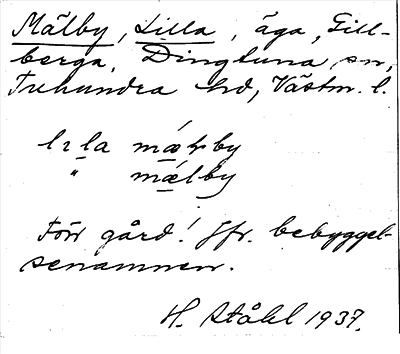 Mälby, Lilla, äga, Gill-
berga, Dingtuna sn,
Tuhundra hd, Västm. l.
lɪla mǽɽby
" mǽlby
Förr gård! Jfr. bebyggel-
senamnen.
H. Ståhl 1937.